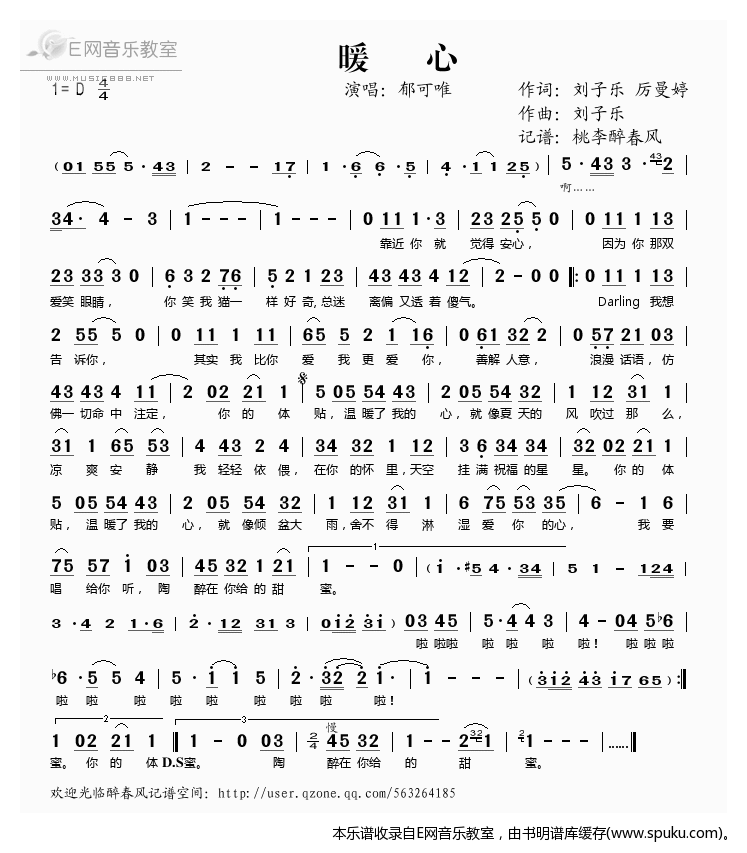 E网音乐教室
WWW.MUSIC888.NET
暖 心
1= D 4/4
演唱：郁可唯
作词：刘子乐 厉曼婷
作曲：刘子乐
记谱：桃李醉春风
(01 55 5· 43 | 2 - - 17 | 1·6 6·5 | 4·1 1 25) | 5·43 3·43 2 |
啊……
34· 4 - 3 | 1 - - - | 1 - - - | 0 11 1·3 | 23 25 5 0 | 0 11 1 13 |
靠近 你 就 觉得 安心， 因为 你 那双
23 33 3 0 | 6 3 2 76 | 5 2 1 23 | 43 43 4 12 | 2 - 0 0 ‖: 0 11 1 13 |
爱笑 眼睛， 你 笑 我 猫一 样 好 奇, 总迷 离偏 又透 着 傻气。 Darling 我想
2 55 5 0 | 0 11 1 11 | 65 5 2 1 16 | 0 61 32 2 | 0 57 21 03 |
告 诉你， 其实 我 比你 爱 我 更 爱 你， 善解 人意， 浪漫 话语，仿
43 43 4 11 | 2 02 21 1 | 5 05 54 43 | 2 05 54 32 | 1 12 31 1 |
佛一 切命 中 注定， 你 的 体 贴，温 暖了 我的 心，就 像夏 天的 风 吹过 那 么，
31 1 65 53 | 4 43 2 4 | 34 32 1 12 | 3 6 34 34 | 32 02 21 1 |
凉 爽 安 静 我 轻轻 依 偎，在你 的怀 里,天空 挂 满 祝福 的星 星。 你 的 体
5 05 54 43 | 2 05 54 32 | 1 12 31 1 | 6 75 53 35 | 6 - 1 6 |
贴，温 暖了 我的 心，就 像倾 盆大 雨，舍不 得 淋 湿 爱 你 的心， 我 要
75 57 1 03 | 45 32 1 21 | 1 - - 0 | (1·#5 4·34 | 5 1 - 124 |
1
唱 给你 听，陶 醉在 你给 的 甜 蜜。
3·4 2 1·6 | 2·12 31 3 | 012 31) 03 45 | 5·4 4 3 | 4 - 04 5♭6 |
啦 啦啦 啦 啦 啦 啦 啦！ 啦 啦 啦
♭6·5 5 4 | 5·1 1 5 | 2·32 2 1 | 1 - - - | (312 43 17 65) :‖
啦 啦 啦 啦 啦 啦 啦 啦 啦！
2 3 慢
1 02 21 1 ‖ 1 - 0 03 | 2/4 45 32 | 1 - - 2 32 1 | 2 1 - - - |……‖
蜜。 你 的 体 D.S 蜜。 陶 醉在 你给 的 甜 蜜。
欢迎光临醉春风记谱空间：http://user.qzone.qq.com/563264185
本乐谱收录自E网音乐教室，由书明谱库缓存(www.spuku.com)。